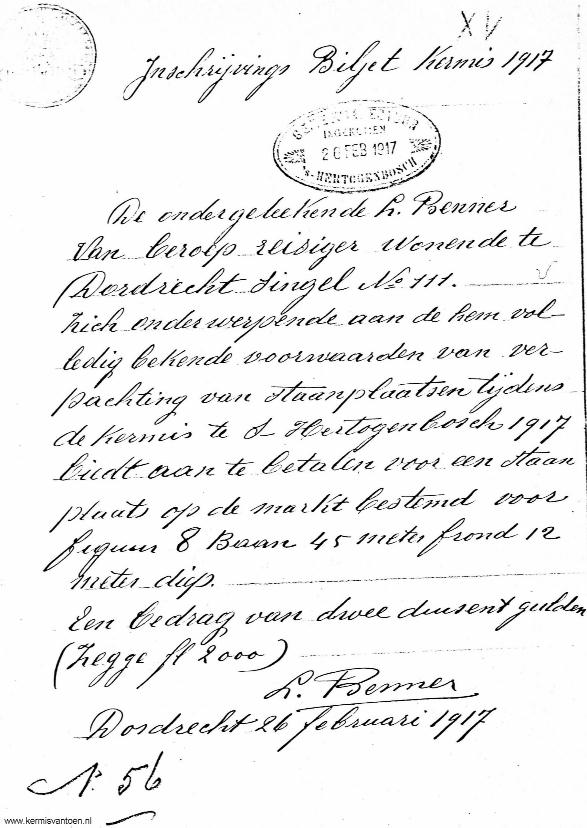 XV
Inschrijvings Biljet Kermis 1917
GEMEENTEBESTUUR
INGEKOMEN
26 FEB 1917
'S-HERTOGENBOSCH
De ondergeteekende L. Benner
Van beroep reisiger wonende te
Dordrecht Singel No 111.
Zich onderwerpende aan de hem vol-
ledig bekende voorwaarden van ver-
pachting van Staanplaatsen tijdens
de Kermis te S- Hertogenbosch 1917
biedt aan te betalen voor een Staan
plaats op de markt bestemd voor
figuur 8 Baan 45 meter frond 12
meter diep.
Een bedrag van dwee duusent gulden
(Zegge fl 2000)
L. Benner
Dordrecht 26 februari 1917
N. 56
www.kermisvantoen.nl